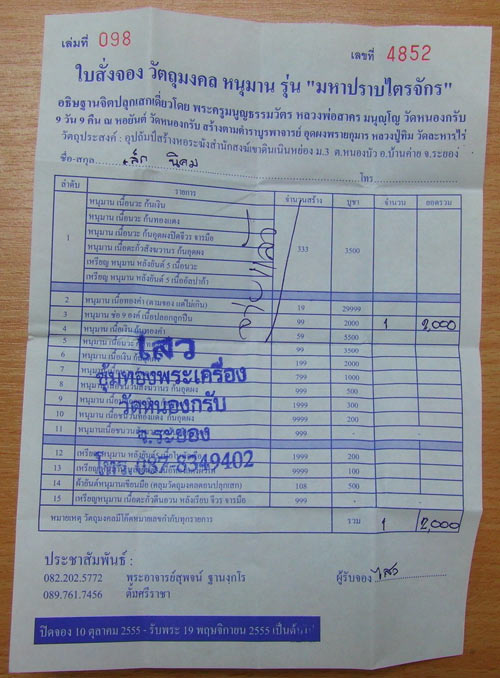 เล่มที่ 098
เลขที่ 4852
ใบสั่งจอง วัตถุมงคล หนุมาน รุ่น "มหาปราบไตรจักร"
อธิษฐานจิตปลุกเสกเดี่ยวโดย พระครูมนูญธรรมวัตร หลวงพ่อสาคร มนุญโญ วัดหนองกรับ
9 วัน 9 คืน ณ หอยันต์ วัดหนองกรับ สร้างตามตำราบูรพาจารย์ อุดผงพรายกุมาร หลวงปู่ทิม วัดละหารไร่
วัตถุประสงค์ : อุปถัมป์สร้างหอระฆังสำนักสงฆ์เขาดินเนินหย่อง ม.3 ต.หนองบัว อ.บ้านค่าย จ.ระยอง
ชื่อ-สกุล เล็ก นิคม โทร
ลำดับ รายการ จำนวนสร้าง บูชา จำนวน ยอดรวม
หนุมาน เนื้อนวะ ก้นเงิน
หนุมาน เนื้อนวะ ก้นทองแดง
หนุมาน เนื้อนวะ ก้นอุดผงปิดจีวร จารมือ
1 หนุมาน เนื้อตะกั่วสังฆวานร ก้นอุดผง 333 3500
เหรียญ หนุมาน หลังยันต์ 5 เนื้อนวะ
เหรียญ หนุมาน หลังยันต์ 5 เนื้ออัลปาก้า
2 หนุมาน เนื้อทองคำ (ตามจอง แต่ไม่เกิน) 19 29999
3 หนุมาน ช่อ 9 องค์ เนื้อปลอกลูกปืน 99 2000 1 2,000
4 หนุมาน เนื้อเงิน ก้นทองคำ 59 5500
5 หนุมาน เนื้อนวะ 99 3500
6 หนุมาน เนื้อเงิน 199 2000
7 799 1000
8 999 300
9 1999 300
10 9999 200
11 หนุมาน เนื้อชนวน 999 -
12 เหรียญหนุมาน หลังยันต์ 1999 200
13 9999 100
14 ผ้ายันต์หนุมานเขียนมือ (คลุมวัตถุมงคลตอนปลุกเสก) 108 500
15 เหรียญหนุมาน เนื้อตะกั่วตีนอวน หลังเรียบ จีวร จารมือ 999 -
หมายเหตุ วัตถุมงคลมีโค๊ตหมายเลขกำกับทุกรายการ รวม 1 2,000
ไสว
ซุ้มทองพระเครื่อง
วัดหนองกรับ
จ.ระยอง
โทร 087-8349402
ประชาสัมพันธ์ :
082.202.5772 พระอาจารย์สุพจน์ ฐานงฺกโร
089.761.7456 ตั้มศรีราชา
ผู้รับจอง ไสว
ปิดจอง 10 ตุลาคม 2555 - รับพระ 19 พฤศจิกายน 2555 เป็นต้นไป